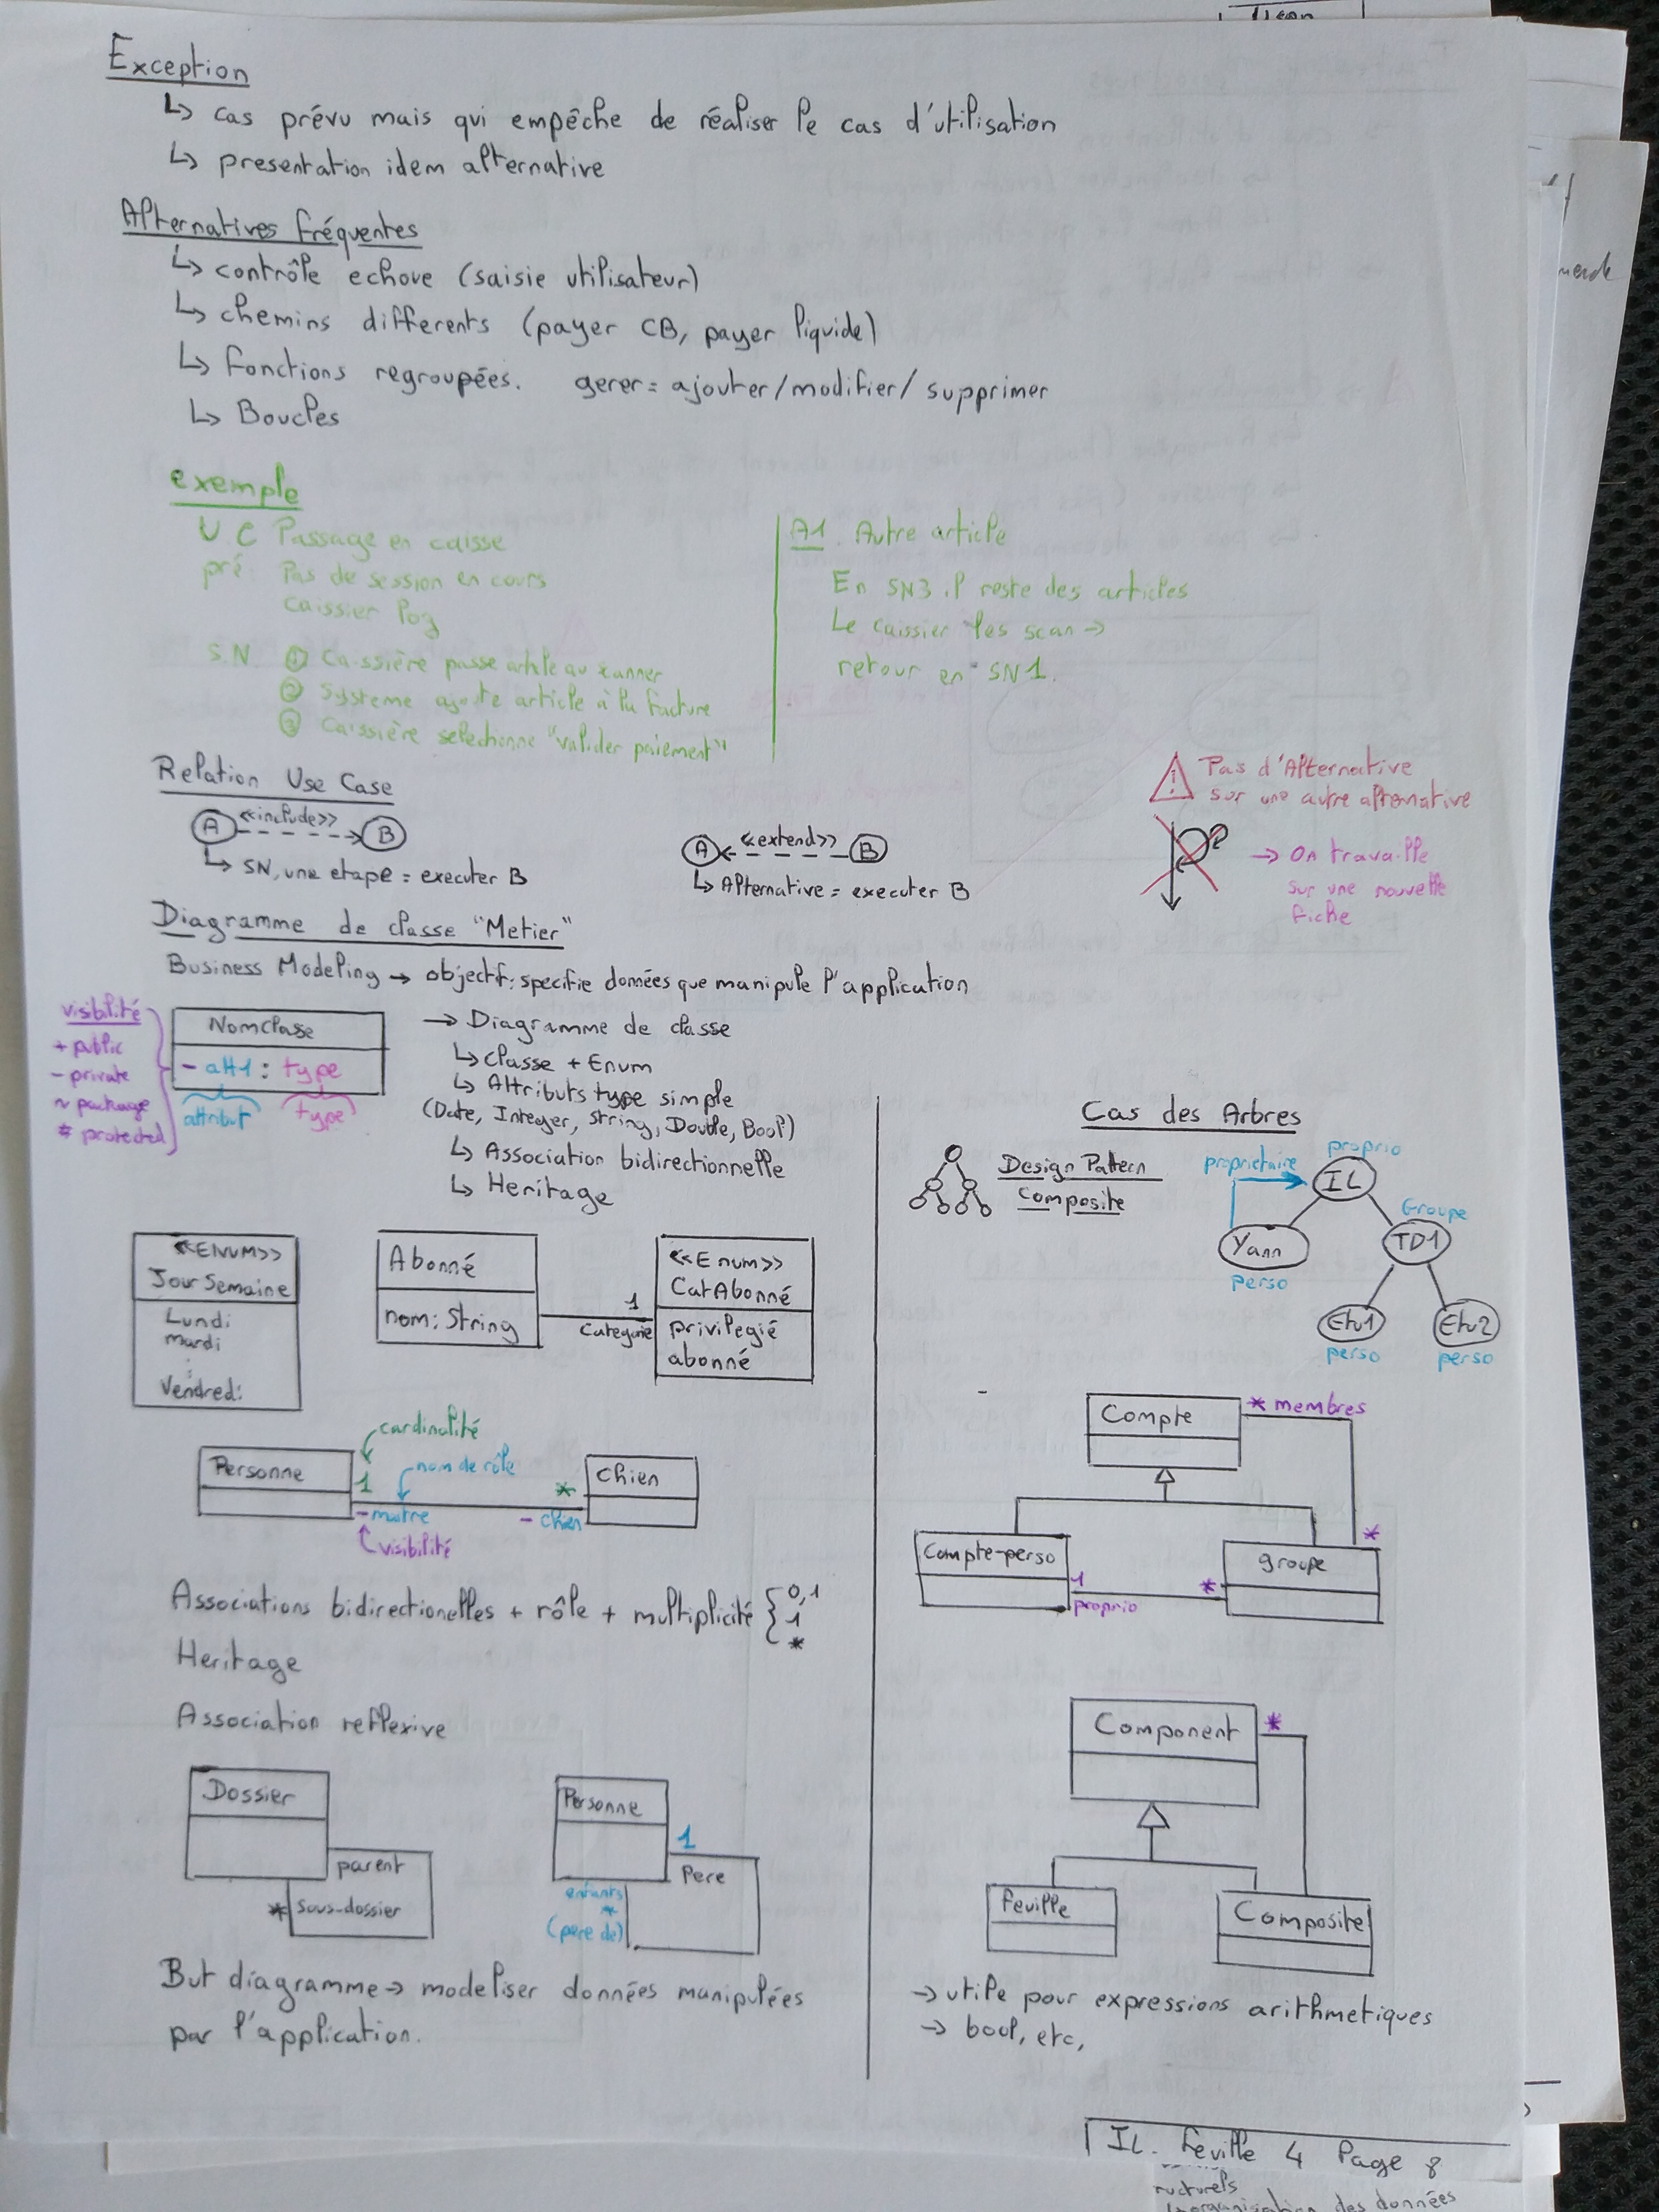 Exception
↳ cas prévu mais qui empêche de réaliser le cas d'utilisation
↳ presentation idem alternative
Alternatives fréquentes
↳ contrôle echove (saisie utilisateur)
↳ chemins differents (payer CB, payer liquide)
↳ Fonctions regroupées. gerer = ajouter/modifier/supprimer
↳ Boucles
exemple
U.C Passage en caisse
pré: Pas de session en cours
caissier log
S.N ① Caissière passe article au scanner
② Systeme ajoute article à la facture
③ Caissière selectionne "valider paiement"
A1. Autre article
En SN3 il reste des articles
Le caissier les scan →
retour en SN1.
Relation Use Case
A <<include>> B
↳ SN, une etape = executer B
A <<extend>> B
↳ Alternative = executer B
⚠ Pas d'Alternative
sur une autre alternative
→ On travaille
sur une nouvelle
fiche
Diagramme de classe "Metier"
Business Modeling → objectif: specifie données que manipule l'application
visibilité
+ public
- private
~ package
# protected
NomClasse
- att1 : type
attribut type
→ Diagramme de classe
↳ classe + Enum
↳ Attributs type simple
(Date, Integer, String, Double, Bool)
↳ Association bidirectionnelle
↳ Heritage
<<ENUM>>
Jour Semaine
Lundi
mardi
⋮
Vendredi
Abonné
nom: String
1
Categorie
<<Enum>>
CatAbonné
privilegié
abonné
cardinalité
nom de rôle
Personne
1
- maitre
visibilité
*
- chien
Chien
Associations bidirectionelles + rôle + multiplicité { 0,1
1
*
Heritage
Association reflexive
Dossier
parent
* sous-dossier
Personne
1
Pere
enfants
*
(pere de)
But diagramme → modeliser données manipulées
par l'application.
Cas des Arbres
Design Pattern
Composite
proprietaire
proprio
IL
Groupe
Yann
TD1
perso
Etu1
Etu2
perso
perso
Compte
* membres
Compte-perso
1
proprio
*
groupe
*
Component
*
Feuille
Composite
→ utile pour expressions arithmetiques
→ bool, etc,
IL. Feuille 4 Page 8
ructurels
des données